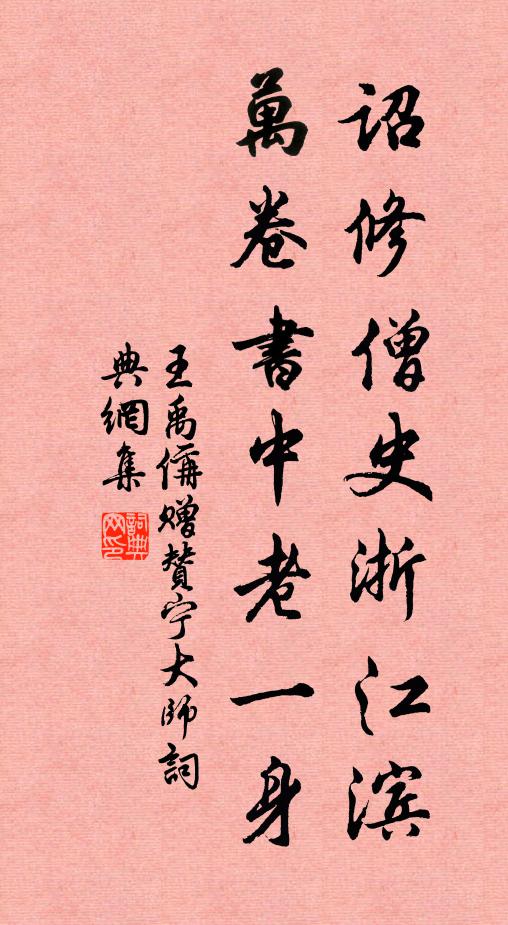 诏修僧史浙江滨
萬卷書中老一身
王禹偁赠贊宁大師詞
典網集
詞典网印